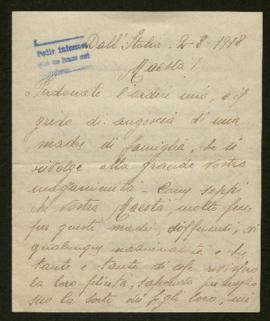 Pedir informes
Dall' Italia. 2-8-1918
Maestà!
Perdonate l'ardire mio, è il
grido di angoscia di una
madre di famiglia, che si
rivolge alla grande Vostra
Come seppi
la Vostra Maestà, molto fece
per queste madri, differenti, di
qualunque nazionalità e che
tante e tante di esse
la loro felicità, sapendo
la sorte dei figli loro, un